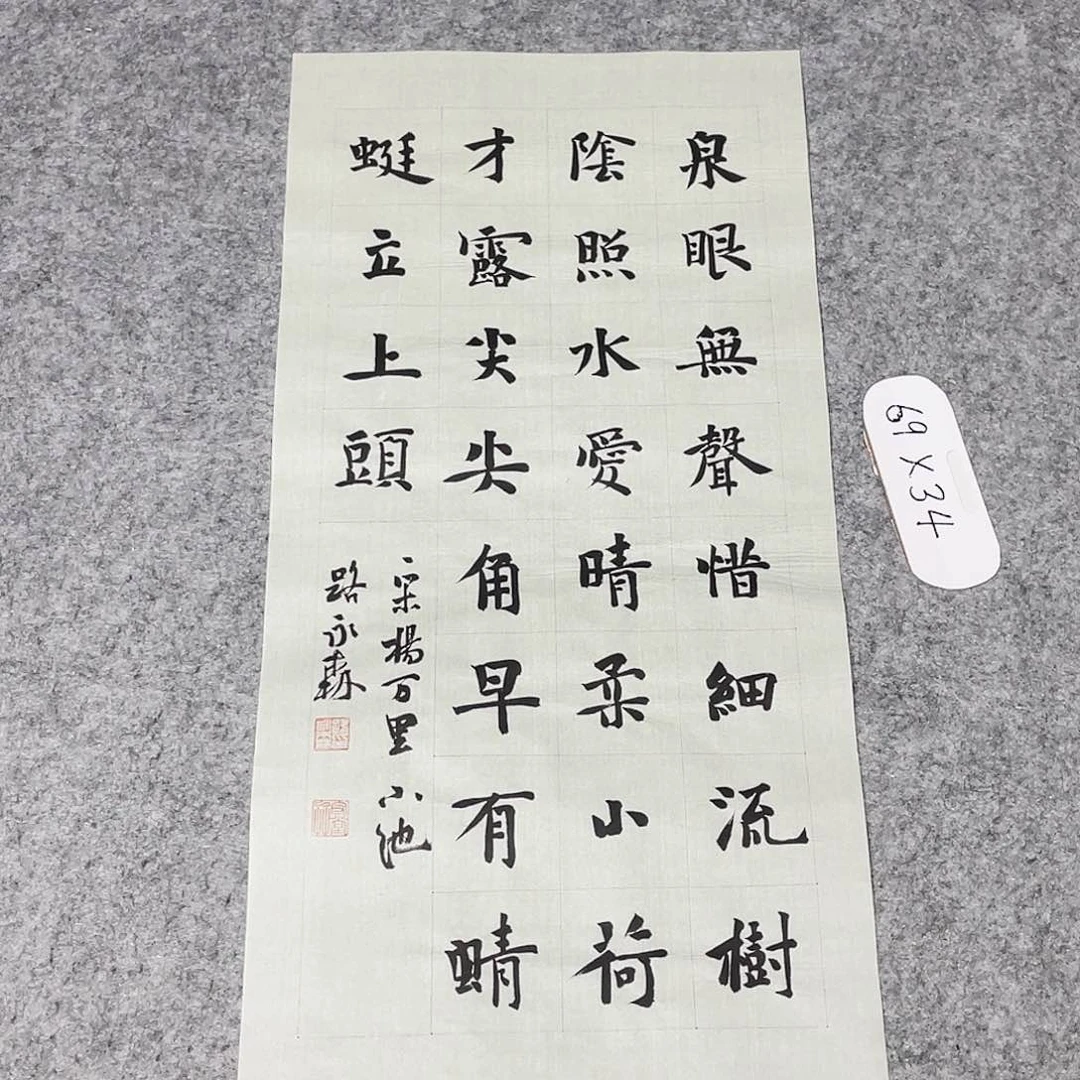 泉眼無聲惜細流樹
陰照水愛晴柔小荷
才露尖尖角早有蜻
蜓立上頭
宋楊万里小池
路永森
69X34